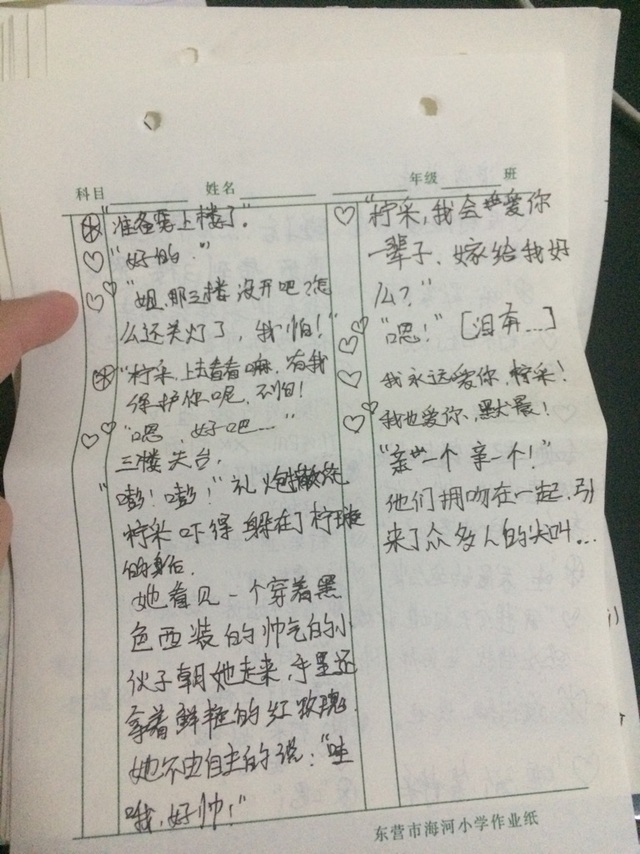 科目 姓名 年级 班
"准备要上楼了."
"好的."
"姐,那三楼没开吧?怎
么还关灯了,我怕!"
"柠采,上去看看嘛,有我
保护你呢,不怕!
"嗯,好吧...."
三楼天台,
"嘭!嘭!"礼炮
柠采吓得躲在了柠
的身后.
她看见一个穿着黑
色西装的帅气的小
伙子朝她走来,手里还
拿着鲜艳的红玫瑰.
她不由自主的说:"哇
哦,好帅!"
"柠采,我会爱你
一辈子,嫁给我好
么?"
"嗯!" [泪奔....]
我永远爱你,柠采!
我也爱你,默晨!
"亲一个 亲一个!"
他们拥吻在一起,引
来了众多人的尖叫...
东营市海河小学作业纸